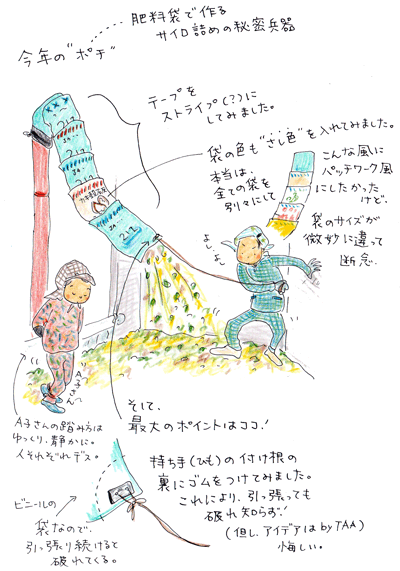 今年の"ポチ"
肥料袋で作る
サイロ詰めの秘密兵器
テープを
ストライプ(?)に
してみました。
袋の色も"さし色"を入れてみました。
本当は、
全ての袋を
別々にして
こんな風に
パッチワーク風
にしたかった
けど、
袋のサイズが
微妙に違って
断念.
よし、よし
A子さん
A子さんの踏み方は
ゆっくり、静かに。
人それぞれデス。
そして、
最大のポイントはココ!
持ち手(ひも)の付け根の
裏にゴムをつけてみました。
これにより、引っ張っても
破れ知らず!
(但し、アイデアは by TAA)
悔しい。
ビニールの
袋なので、
引っ張り続けると
破れてくる。